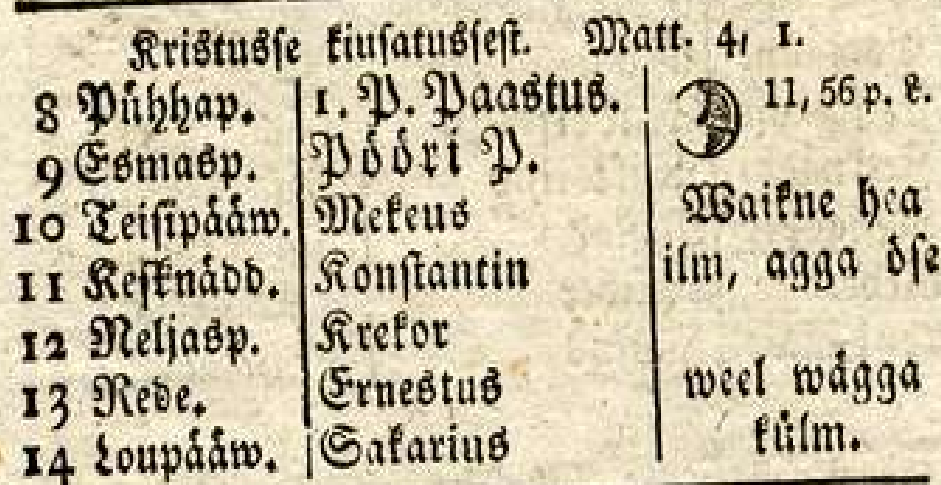 Kristusse kiusatussest. Matt. 4, 1.
8 Pühhap. 1. P. Paastus. 11, 56 p. k.
9 Esmasp. Pööri P.
10 Teisipääw. Mekeus Waikne hea
11 Kesknädd. Konstantin ilm, agga öse
12 Neljasp. Krekor
13 Rede. Ernestus weel wägga
14 Loupääw. Sakarius külm.